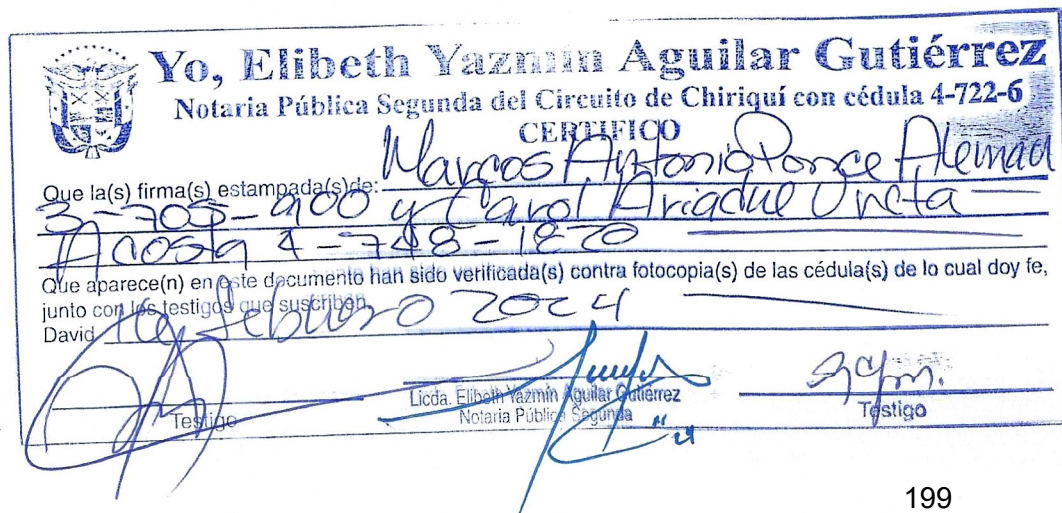 Yo, Elibeth Yazmín Aguilar Gutiérrez
Notaria Pública Segunda del Circuito de Chiriquí con cédula 4-722-6
CERTIFICO
Que la(s) firma(s) estampada(s)de: Marcos Antonio Ponce Aleman
3-705-900 y Carol Ariadne Ureta
Acosta 4-748-1820
Que aparece(n) en este documento han sido verificada(s) contra fotocopia(s) de las cédula(s) de lo cual doy fe,
junto con los testigos que suscriben
David febrero 2024
Testigo
Licda. Elibeth Yazmín Aguilar Gutiérrez
Notaria Pública Segunda
Testigo
199